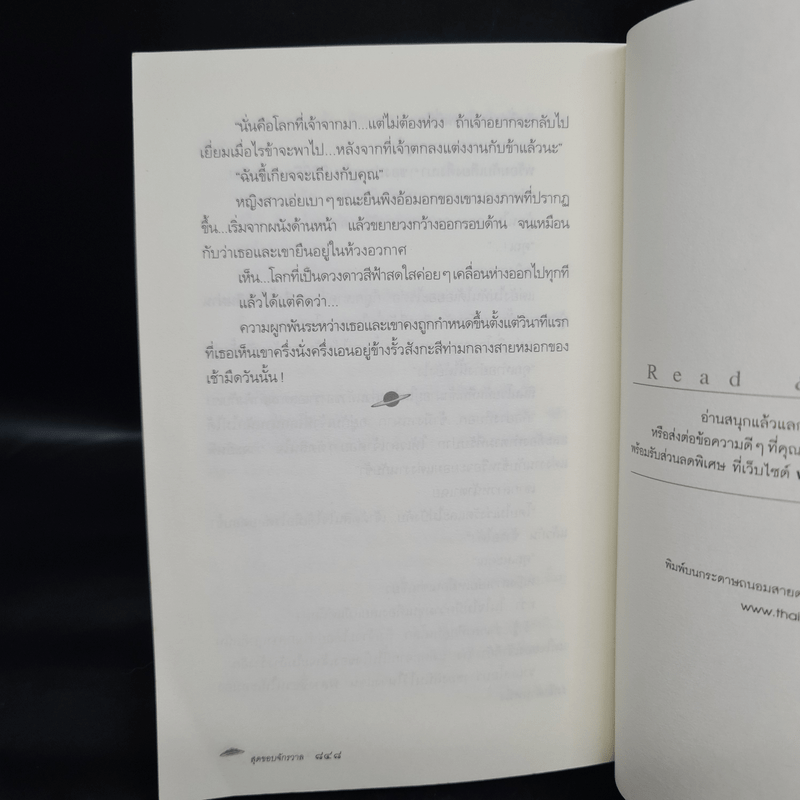 "นั่นคือโลกที่เจ้าจากมา...แต่ไม่ต้องห่วง ถ้าเจ้าอยากจะกลับไป
เยี่ยมเมื่อไรข้าจะพาไป...หลังจากที่เจ้าตกลงแต่งงานกับข้าแล้วนะ"
"ฉันขี้เกียจจะเถียงกับคุณ"
หญิงสาวเอ่ยเบาๆ ขณะยืนพิงอ้อมอกของเขามองภาพที่ปรากฏ
ขึ้น...เริ่มจากผนังด้านหน้า แล้วขยายวงกว้างออกรอบด้าน จนเหมือน
กับว่าเธอและเขายืนอยู่ในห้วงอวกาศ
เห็น...โลกที่เป็นดวงดาวสีฟ้าสดใสค่อยๆ เคลื่อนห่างออกไปทุกที
แล้วได้แต่คิดว่า...
ความผูกพันระหว่างเธอและเขาคงถูกกำหนดขึ้นตั้งแต่วินาทีแรก
ที่เธอเห็นเขาครึ่งนั่งครึ่งเอนอยู่ข้างรั้วสังกะสีท่ามกลางสายหมอกของ
เช้ามืดวันนั้น!
สุดขอบจักรวาล ๘๔๘
Read
อ่านสนุกแล้วแลก
หรือส่งต่อข้อความดีๆ ที่คุณ
พร้อมรับส่วนลดพิเศษ ที่เว็บไซต์
พิมพ์บนกระดาษถนอมสายต
www.thai